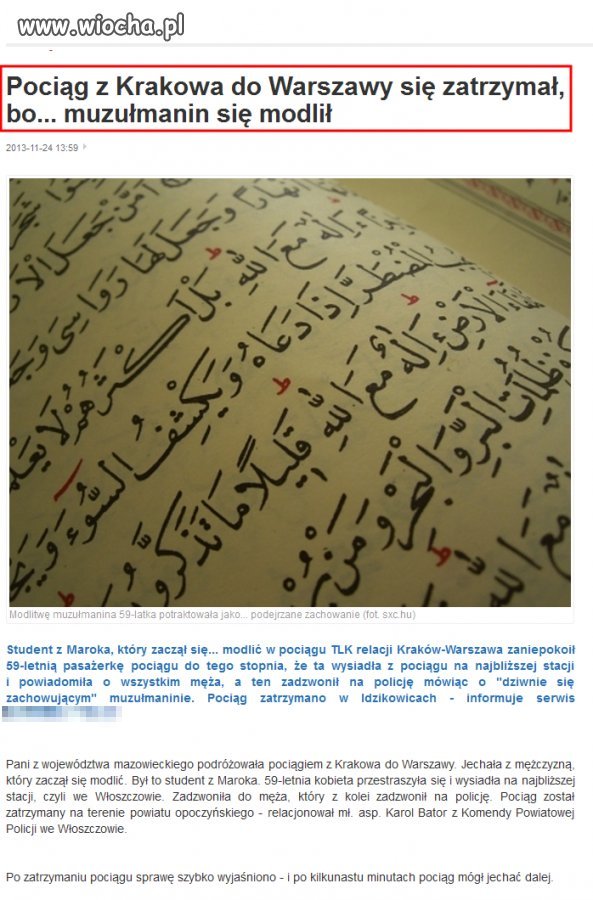 www.wiocha.pl
Pociąg z Krakowa do Warszawy się zatrzymał,
bo... muzułmanin się modlił
2013-11-24 13:59
أَمَّنْ جَعَلَ الْأَ
وَجَعَلَ لَهَا رَوَاسِيَ وَجَ
أَإِلَٰهٌ مَعَ اللَّهِ بَلْ أَكْثَرُهُمْ لَا يَعْلَمُ
الْمُضْطَرَّ إِذَا دَعَاهُ وَيَكْشِفُ السُّوءَ وَيَجْ
الْأَرْضِ أَإِلَٰهٌ مَعَ اللَّهِ قَلِيلًا مَا تَذَكَّرُو
ظُلُمَاتِ الْبَرِّ وَالْبَحْرِ وَمَنْ
مَعَ اللَّهِ
Modlitwę muzułmanina 59-latka potraktowała jako... podejrzane zachowanie (fot. sxc.hu)
Student z Maroka, który zaczął się... modlić w pociągu TLK relacji Kraków-Warszawa zaniepokoił
59-letnią pasażerkę pociągu do tego stopnia, że ta wysiadła z pociągu na najbliższej stacji
i powiadomiła o wszystkim męża, a ten zadzwonił na policję mówiąc o "dziwnie się
zachowującym" muzułmaninie. Pociąg zatrzymano w Idzikowicach - informuje serwis
Pani z województwa mazowieckiego podróżowała pociągiem z Krakowa do Warszawy. Jechała z mężczyzną,
który zaczął się modlić. Był to student z Maroka. 59-letnia kobieta przestraszyła się i wysiadła na najbliższej
stacji, czyli we Włoszczowie. Zadzwoniła do męża, który z kolei zadzwonił na policję. Pociąg został
zatrzymany na terenie powiatu opoczyńskiego - relacjonował mł. asp. Karol Bator z Komendy Powiatowej
Policji we Włoszczowie.
Po zatrzymaniu pociągu sprawę szybko wyjaśniono - i po kilkunastu minutach pociąg mógł jechać dalej.